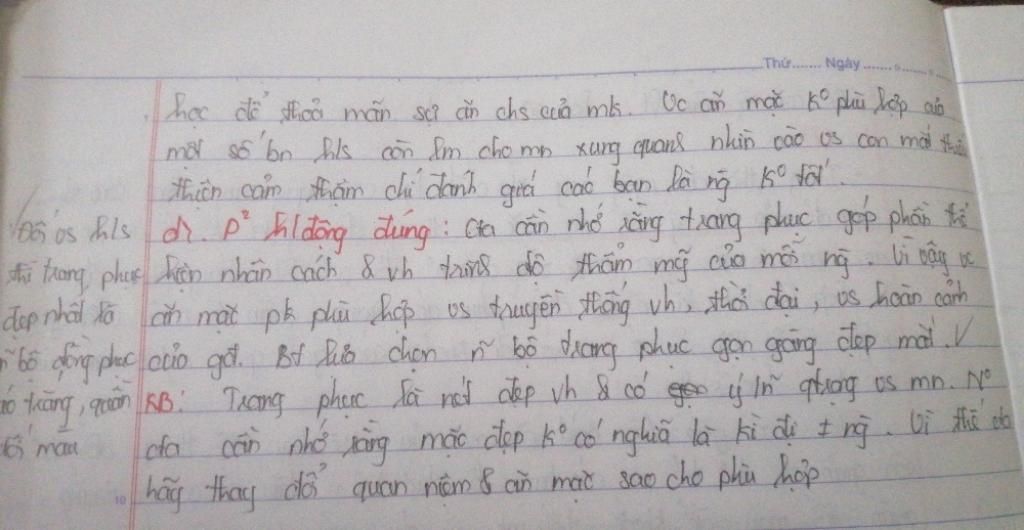 Thứ....... Ngày.......
học để thoả mãn sự ăn chs của mk. Vc ăn mặc kº phù hợp của
một số bn hls còn lm cho mn xung quanh nhìn vào vs con mắt thiếu
thiện cảm thậm chí đánh giá các bạn là ng kº tốt.
Đối vs hls
thì trang phục
đẹp nhất là
n~ bộ đồng phục
áo trắng, quần
tối màu
d. P² hđộng đúng: Cta cần nhớ rằng trang phục góp phần thể
hiện nhân cách & vh trình độ thẩm mỹ của mỗi ng. Vì vậy vc
ăn mặc pk phù hợp vs truyền thống vh, thời đại, vs hoàn cảnh
của gđ. Bt lựa chọn n~ bộ trang phục gọn gàng đẹp mắt. V
KB: Trang phục là nét đẹp vh & có ý n~ qtrọng vs mn. Nº
cta cần nhớ rằng mặc đẹp kº có nghĩa là kì dị ± ng. Vì thế cta
hãy thay đổi quan niệm & ăn mặc sao cho phù hợp
10